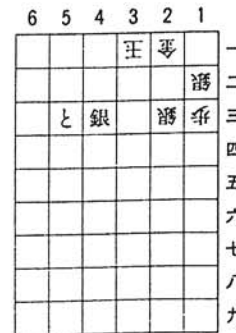 6 5 4 3 2 1
王 金 一
銀 二
と 銀 歩 三
四
五
六
七
八
九